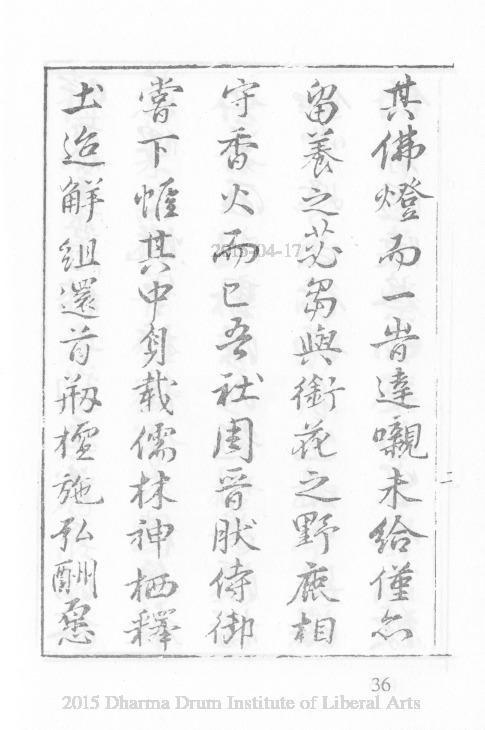 其佛燈而一時達嚫未給僅亦
留養之苾芻與銜花之野鹿相
守香火而已吾社周晉朕侍御
嘗下帷其中身載儒林神栖釋
土迨解組還首捌檀施弘酬
二
2015-04-17
36
2015 Dharma Drum Institute of Liberal Arts